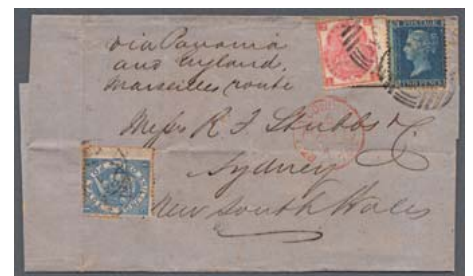 via Panama
and England,
Marseilles route
Messrs R F Stubbs & C
Sydney
New South Wales
POSTAGE